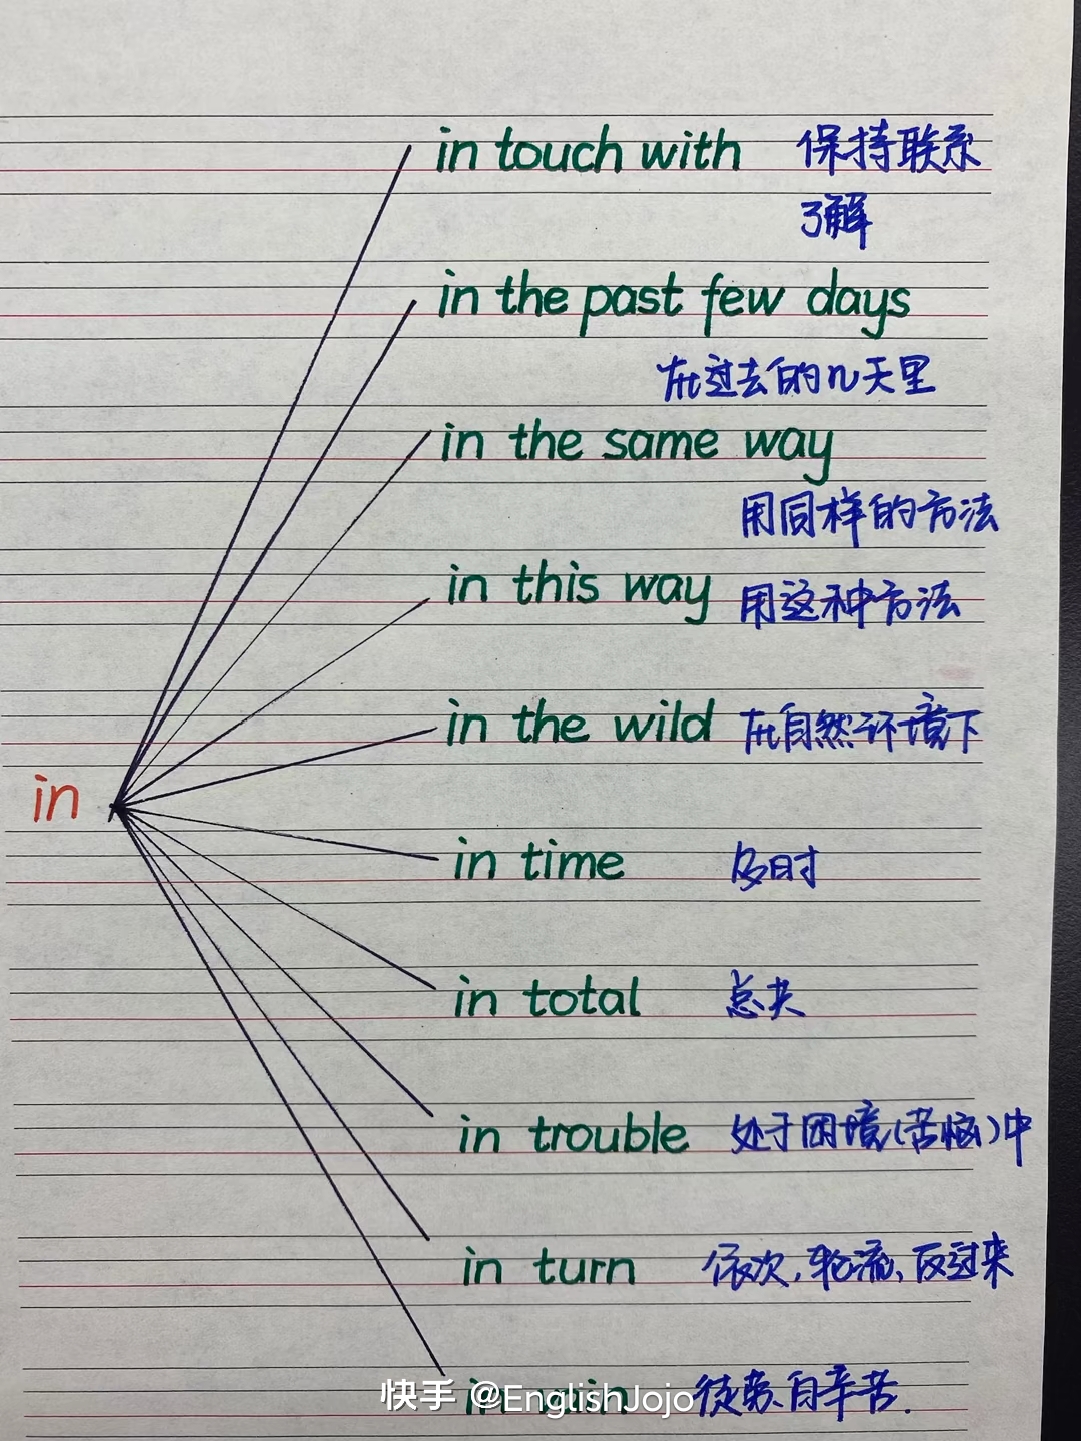 in touch with 保持联系
了解
in the past few days
在过去的几天里
in the same way
用同样的方法
in this way 用这种方法
in the wild 在自然环境下
in
in time 及时
in total 总共
in trouble 处于困境(苦恼)中
in turn 依次,轮流,反过来
in vain 徒劳,白辛苦.
快手 @EnglishJojo